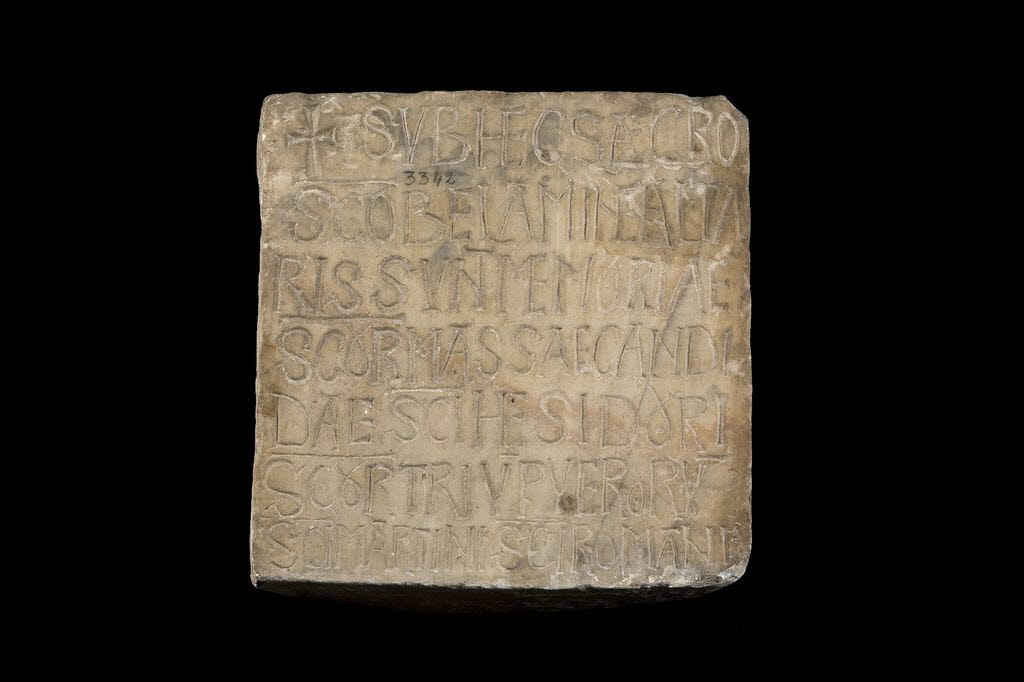 ✝ SVBHECSACRO
3342
SCOBELAMINEALTA
RISSVNTMEMORIAE
SCORMASSAECANDI
DAESCIHESIDORI
SCORTRIVPVERORV
SCIMARTINISCIROMANI